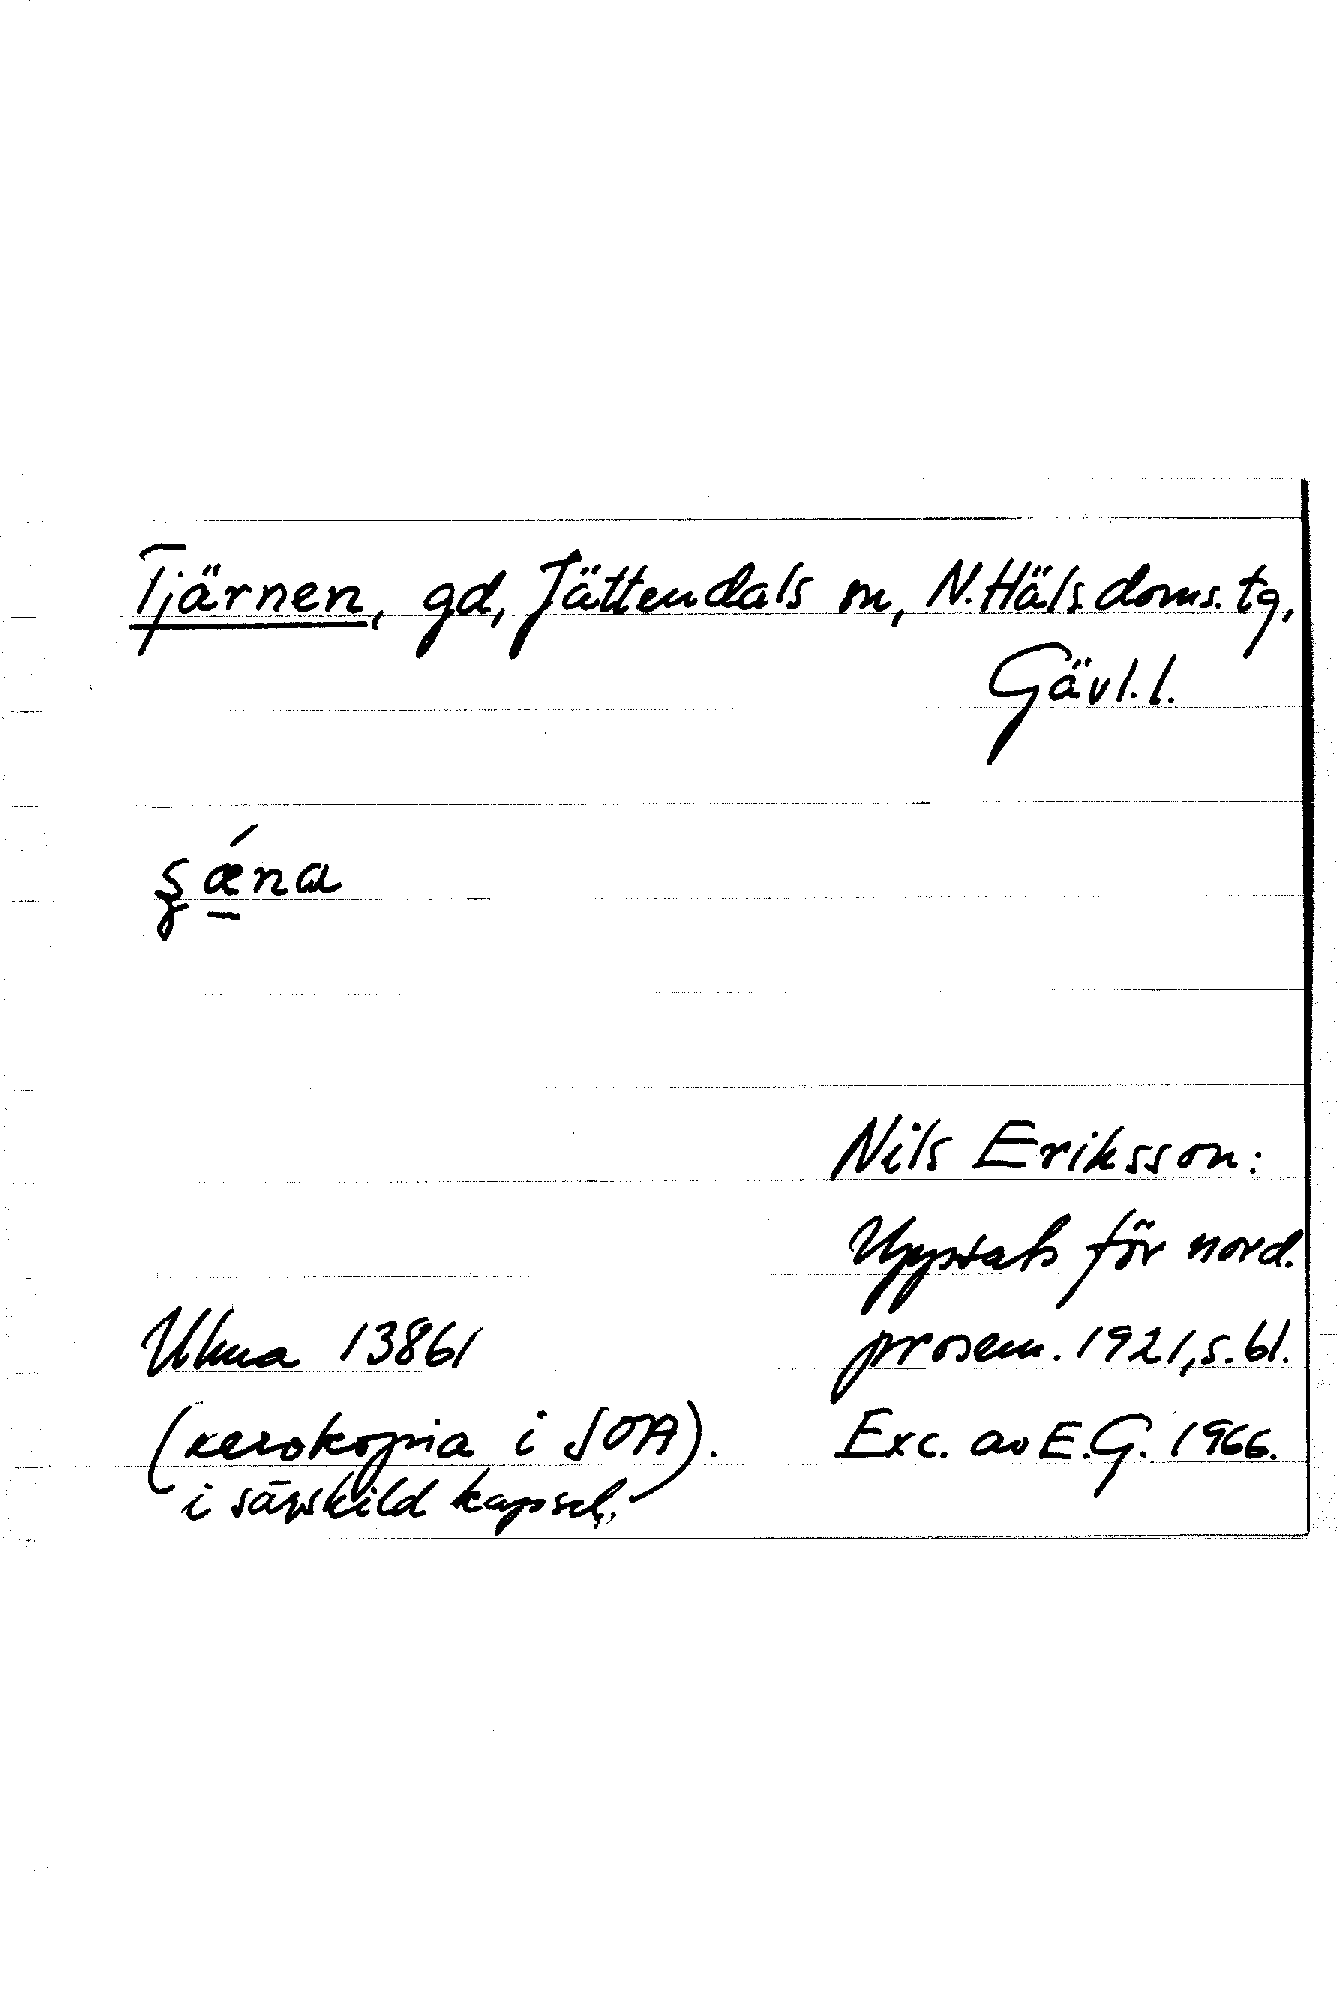 Tjärnen, gd, Jättendals sn, N. Häls. doms. tg,
Gävl. l.
ş ǽ̠na
Nils Eriksson:
Uppsats för nord.
prosem. 1921, s. 61.
Ulma 13861
(xerokopia i SOA).
i särskild kapsel.
Exc. av E.G. 1966.